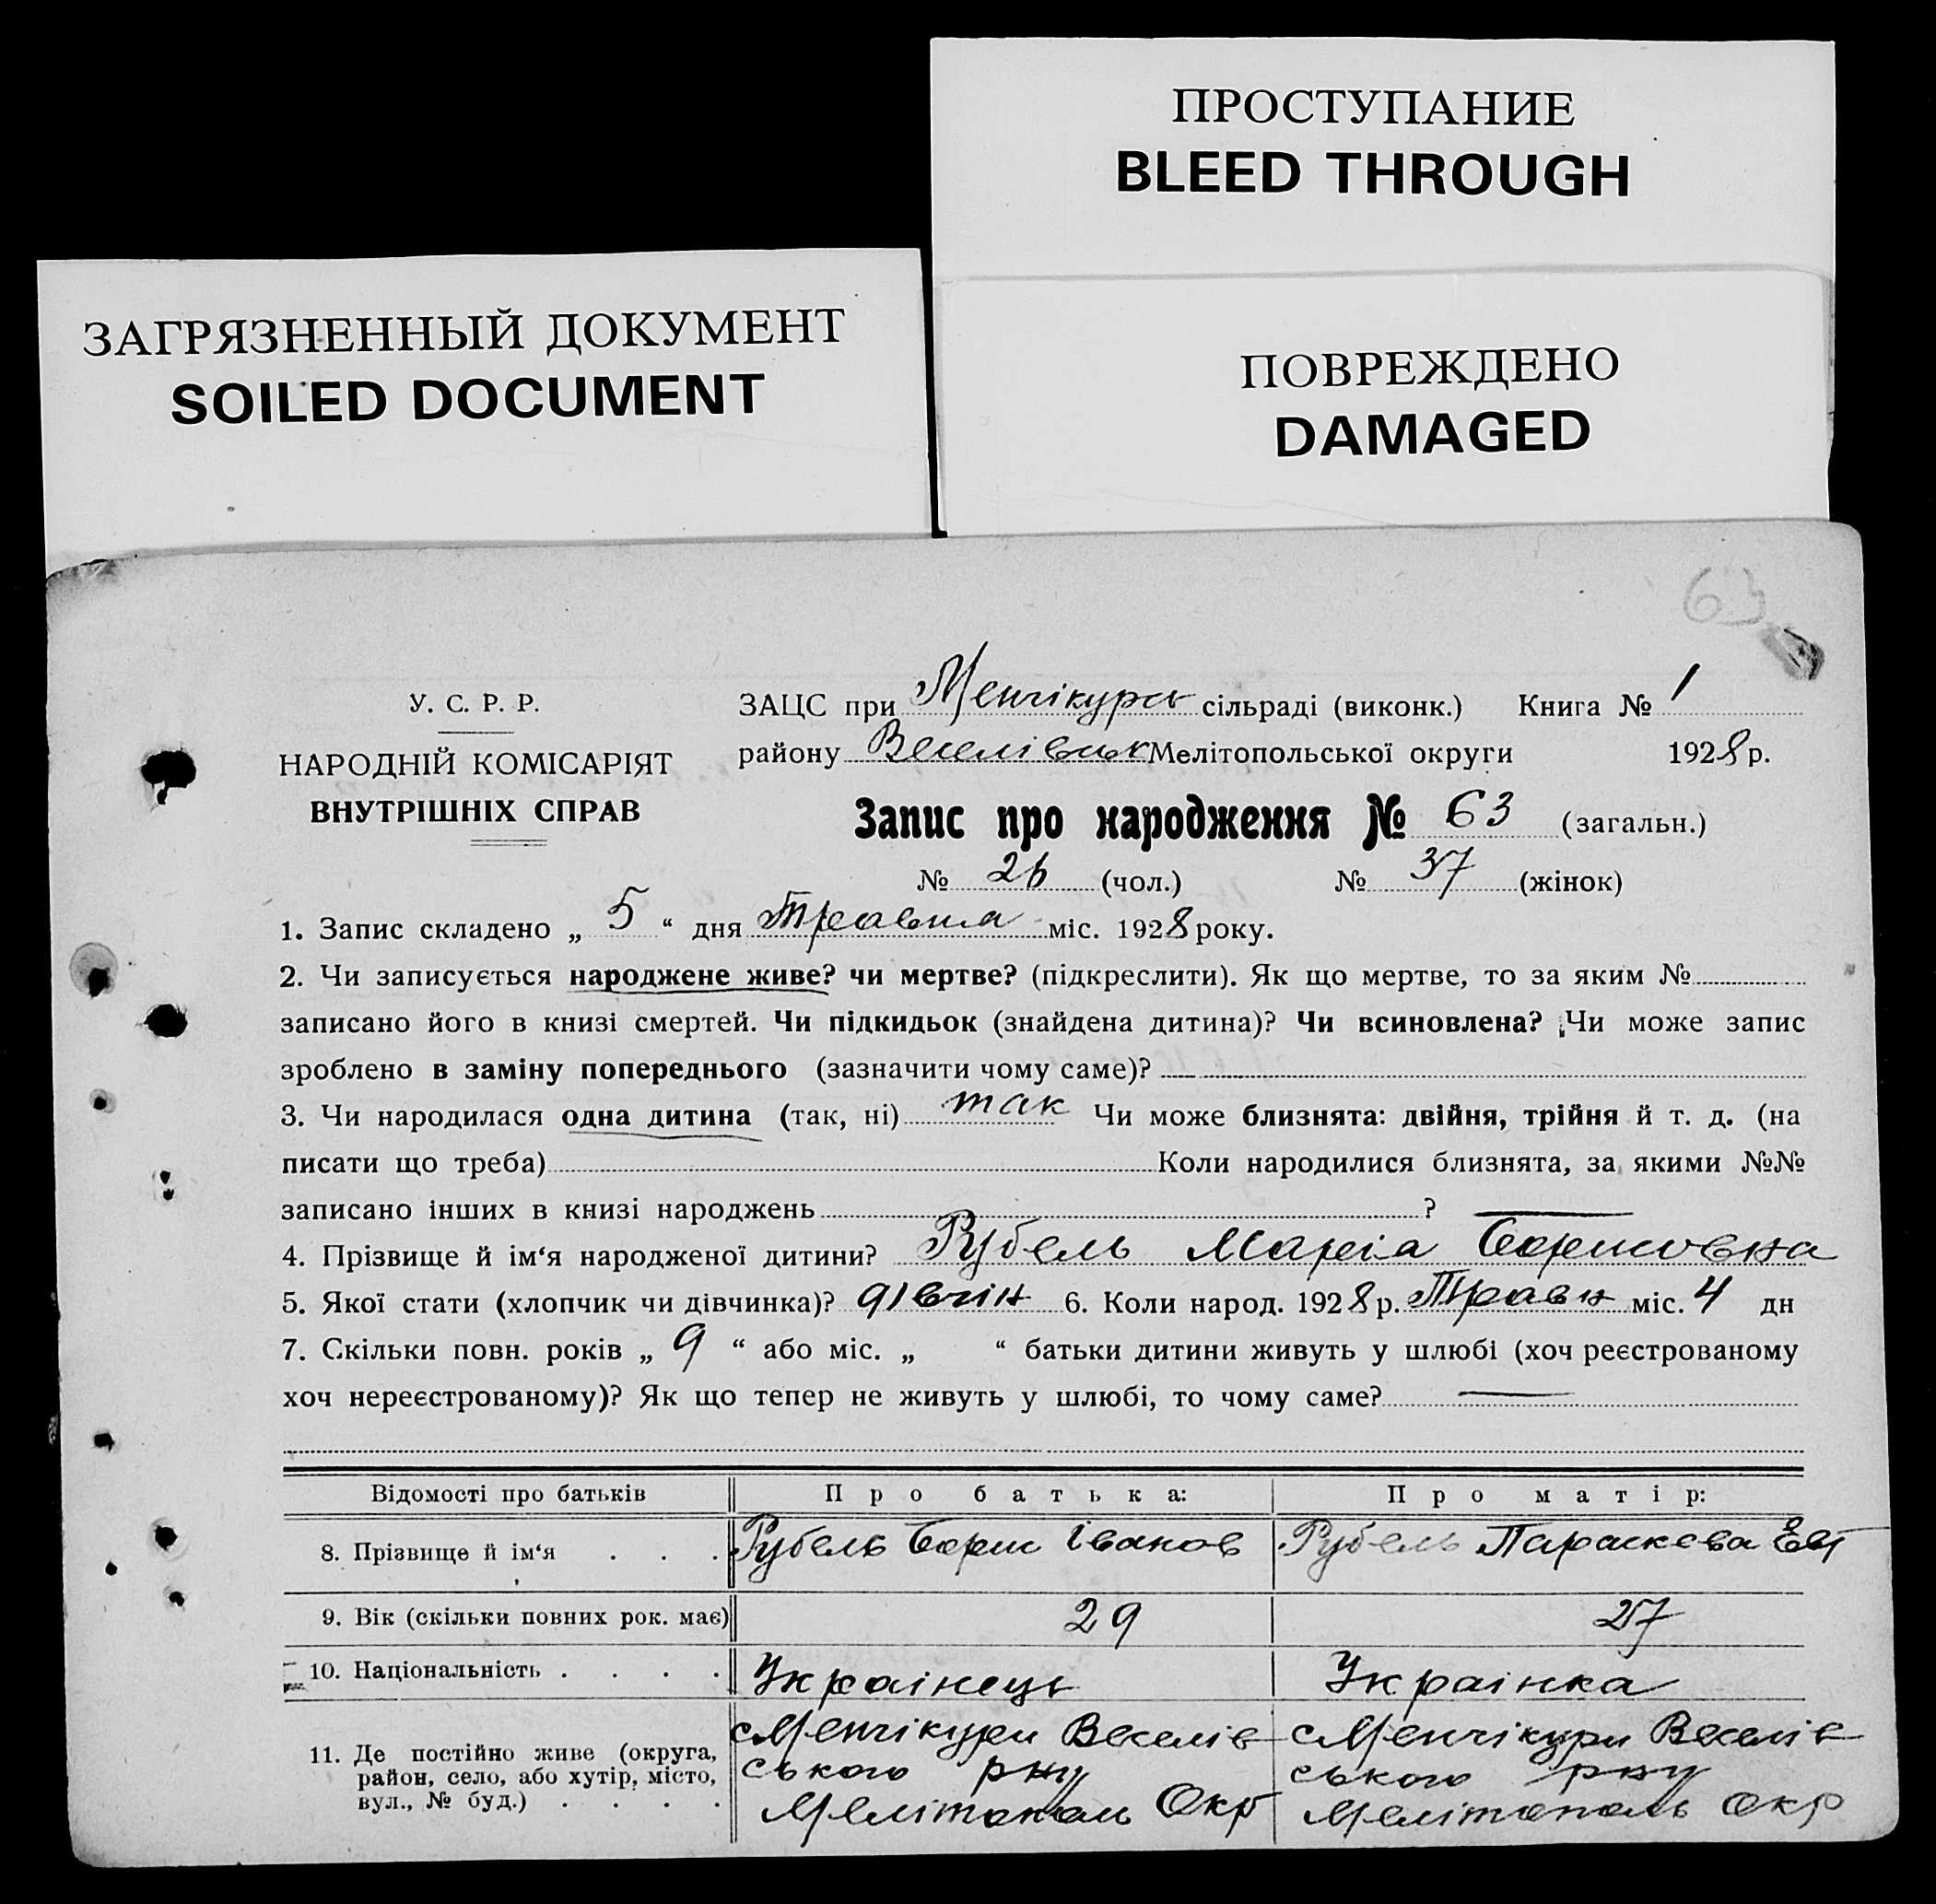 ПРОСТУПАНИЕ
BLEED THROUGH
ЗАГРЯЗНЕННЫЙ ДОКУМЕНТ
SOILED DOCUMENT
ПОВРЕЖДЕНО
DAMAGED
63
У. С. Р. Р.
НАРОДНІЙ КОМІСАРІЯТ
ВНУТРІШНІХ СПРАВ
ЗАЦС при Менчікурсь сільраді (виконк.) Книга № 1
району Веселівськ Мелітопольської округи 1928 р.
Запис про народження № 63 (загальн.)
№ 26 (чол.) № 37 (жінок)
1. Запис складено „ 5 “ дня Травня міс. 1928 року.
2. Чи записується народжене живе? чи мертве? (підкреслити). Як що мертве, то за яким №
записано його в книзі смертей. Чи підкидьок (знайдена дитина)? Чи всиновлена? Чи може запис
зроблено в заміну попереднього (зазначити чому саме)?
3. Чи народилася одна дитина (так, ні) так Чи може близнята: двійня, трійня й т. д. (на
писати що треба) Коли народилися близнята, за якими №№
записано інших в книзі народжень ?
4. Прізвище й ім‘я народженої дитини? Рубель Марія Борисовна
5. Якої стати (хлопчик чи дівчинка)? дівчін 6. Коли народ. 1928 р. Травн міс. 4 дн
7. Скільки повн. років „ 9 “ або міс. „ “ батьки дитини живуть у шлюбі (хоч реєстрованому
хоч нереєстрованому)? Як що тепер не живуть у шлюбі, то чому саме?
Відомості про батьків Про батька: Про матір:
8. Прізвище й ім‘я . . . Рубель Борис Іванов Рубель Параскева Евт
9. Вік (скільки повних рок. має) 29 27
10. Національність . . . . Украінець Украінка
11. Де постійно живе (округа, район, село, або хутір, місто, вул., № буд.) . . . .
с Менчікури Веселів
ського рну
Мелітополь Окр
с Менчікури Веселів
ського рну
Мелітополь окр